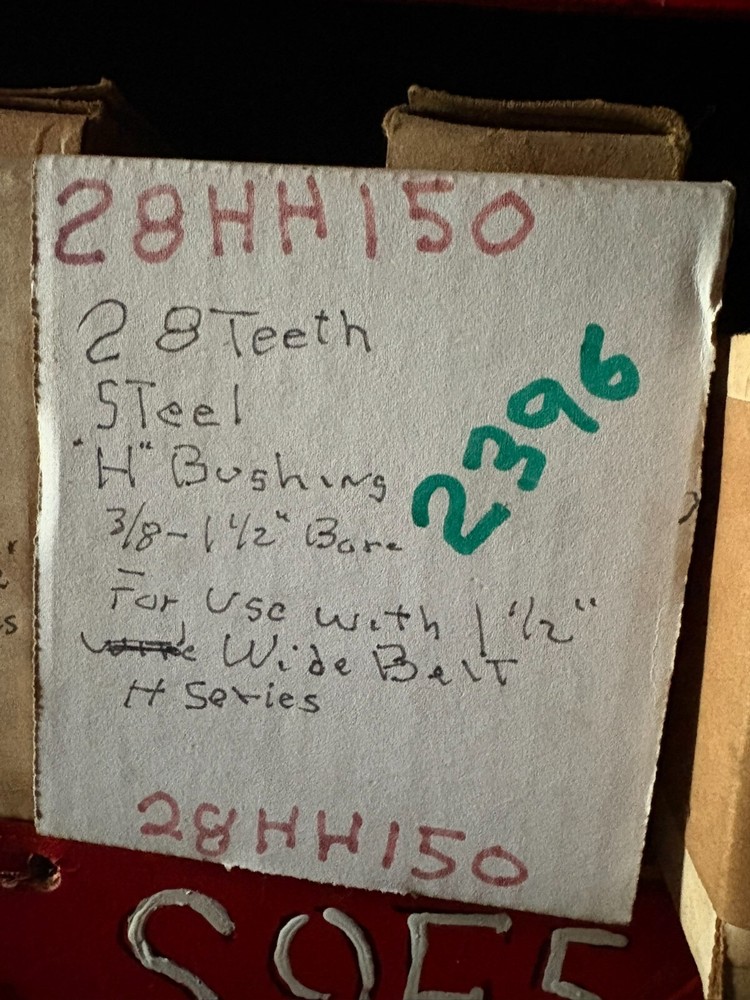 28HH150
28 Teeth
STeel
"H" Bushing
3/8-1 1/2" Bore
2396
For Use with 1 1/2"
Wide BelT
H Series
28HH150